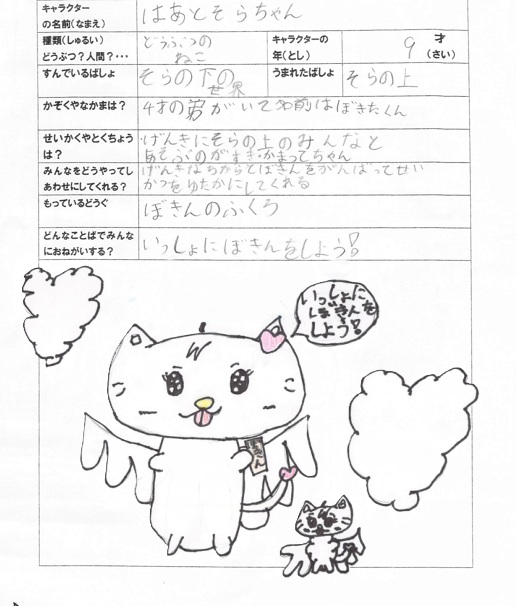 キャラクター
の名前(なまえ)
はあとそらちゃん
種類(しゅるい)
どうぶつ？人間？･･･
どうぶつの
ねこ
キャラクターの
年(とし)
9
才
(さい)
すんでいるばしょ
そらの下の
世界
うまれたばしょ
そらの上
かぞくやなかまは？
4才の弟がいて名前はぼきたくん
せいかくやとくちょう
は？
げんきにそらの上のみんなと
あそぶのがすき・かまってちゃん
みんなをどうやってし
あわせにしてくれる？
げんきなちからとぼきんをがんばってせい
かつをゆたかにしてくれる
もっているどうぐ
ぼきんのふくろ
どんなことばでみんな
におねがいする？
いっしょにぼきんをしよう!
いっしょに
ぼきんを
しよう!